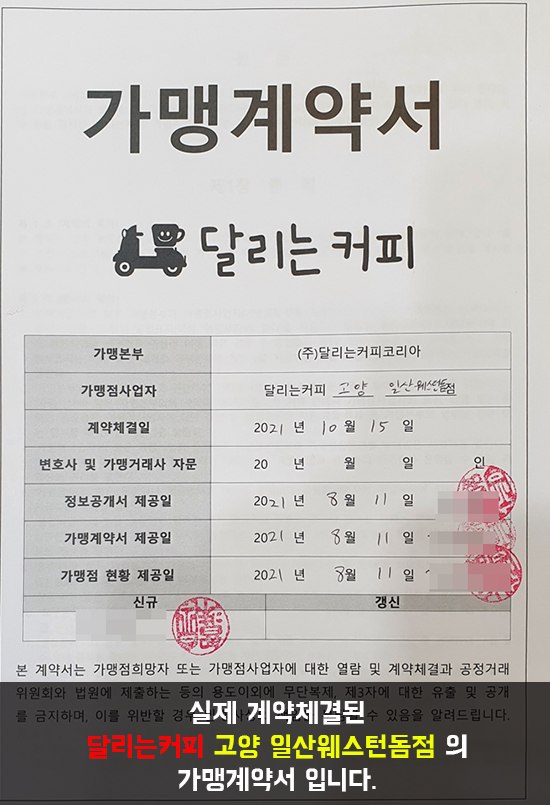 가맹계약서
달리는 커피
가맹본부 (주)달리는커피코리아
가맹점사업자 달리는커피 고양 일산웨스턴돔점
계약체결일 2021 년 10 월 15 일
변호사 및 가맹거래사 자문 20 년 월 일 인
정보공개서 제공일 2021 년 8 월 11 일
가맹계약서 제공일 2021 년 8 월 11 일
가맹점 현황 제공일 2021 년 8월 11 일
신규 갱신
본 계약서는 가맹점희망자 또는 가맹점사업자에 대한 열람 및 계약체결과 공정거래
위원회와 법원에 제출하는 등의 용도이외에 무단복제, 제3자에 대한 유출 및 공개
를 금지하며, 이를 위반할 경우 수 있음을 알려드립니다.
실제 계약체결된
달리는커피 고양 일산웨스턴돔점 의
가맹계약서 입니다.